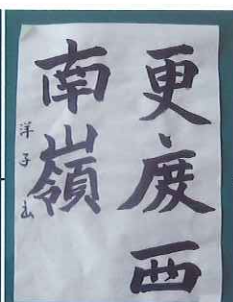 更度西
南嶺
洋子书